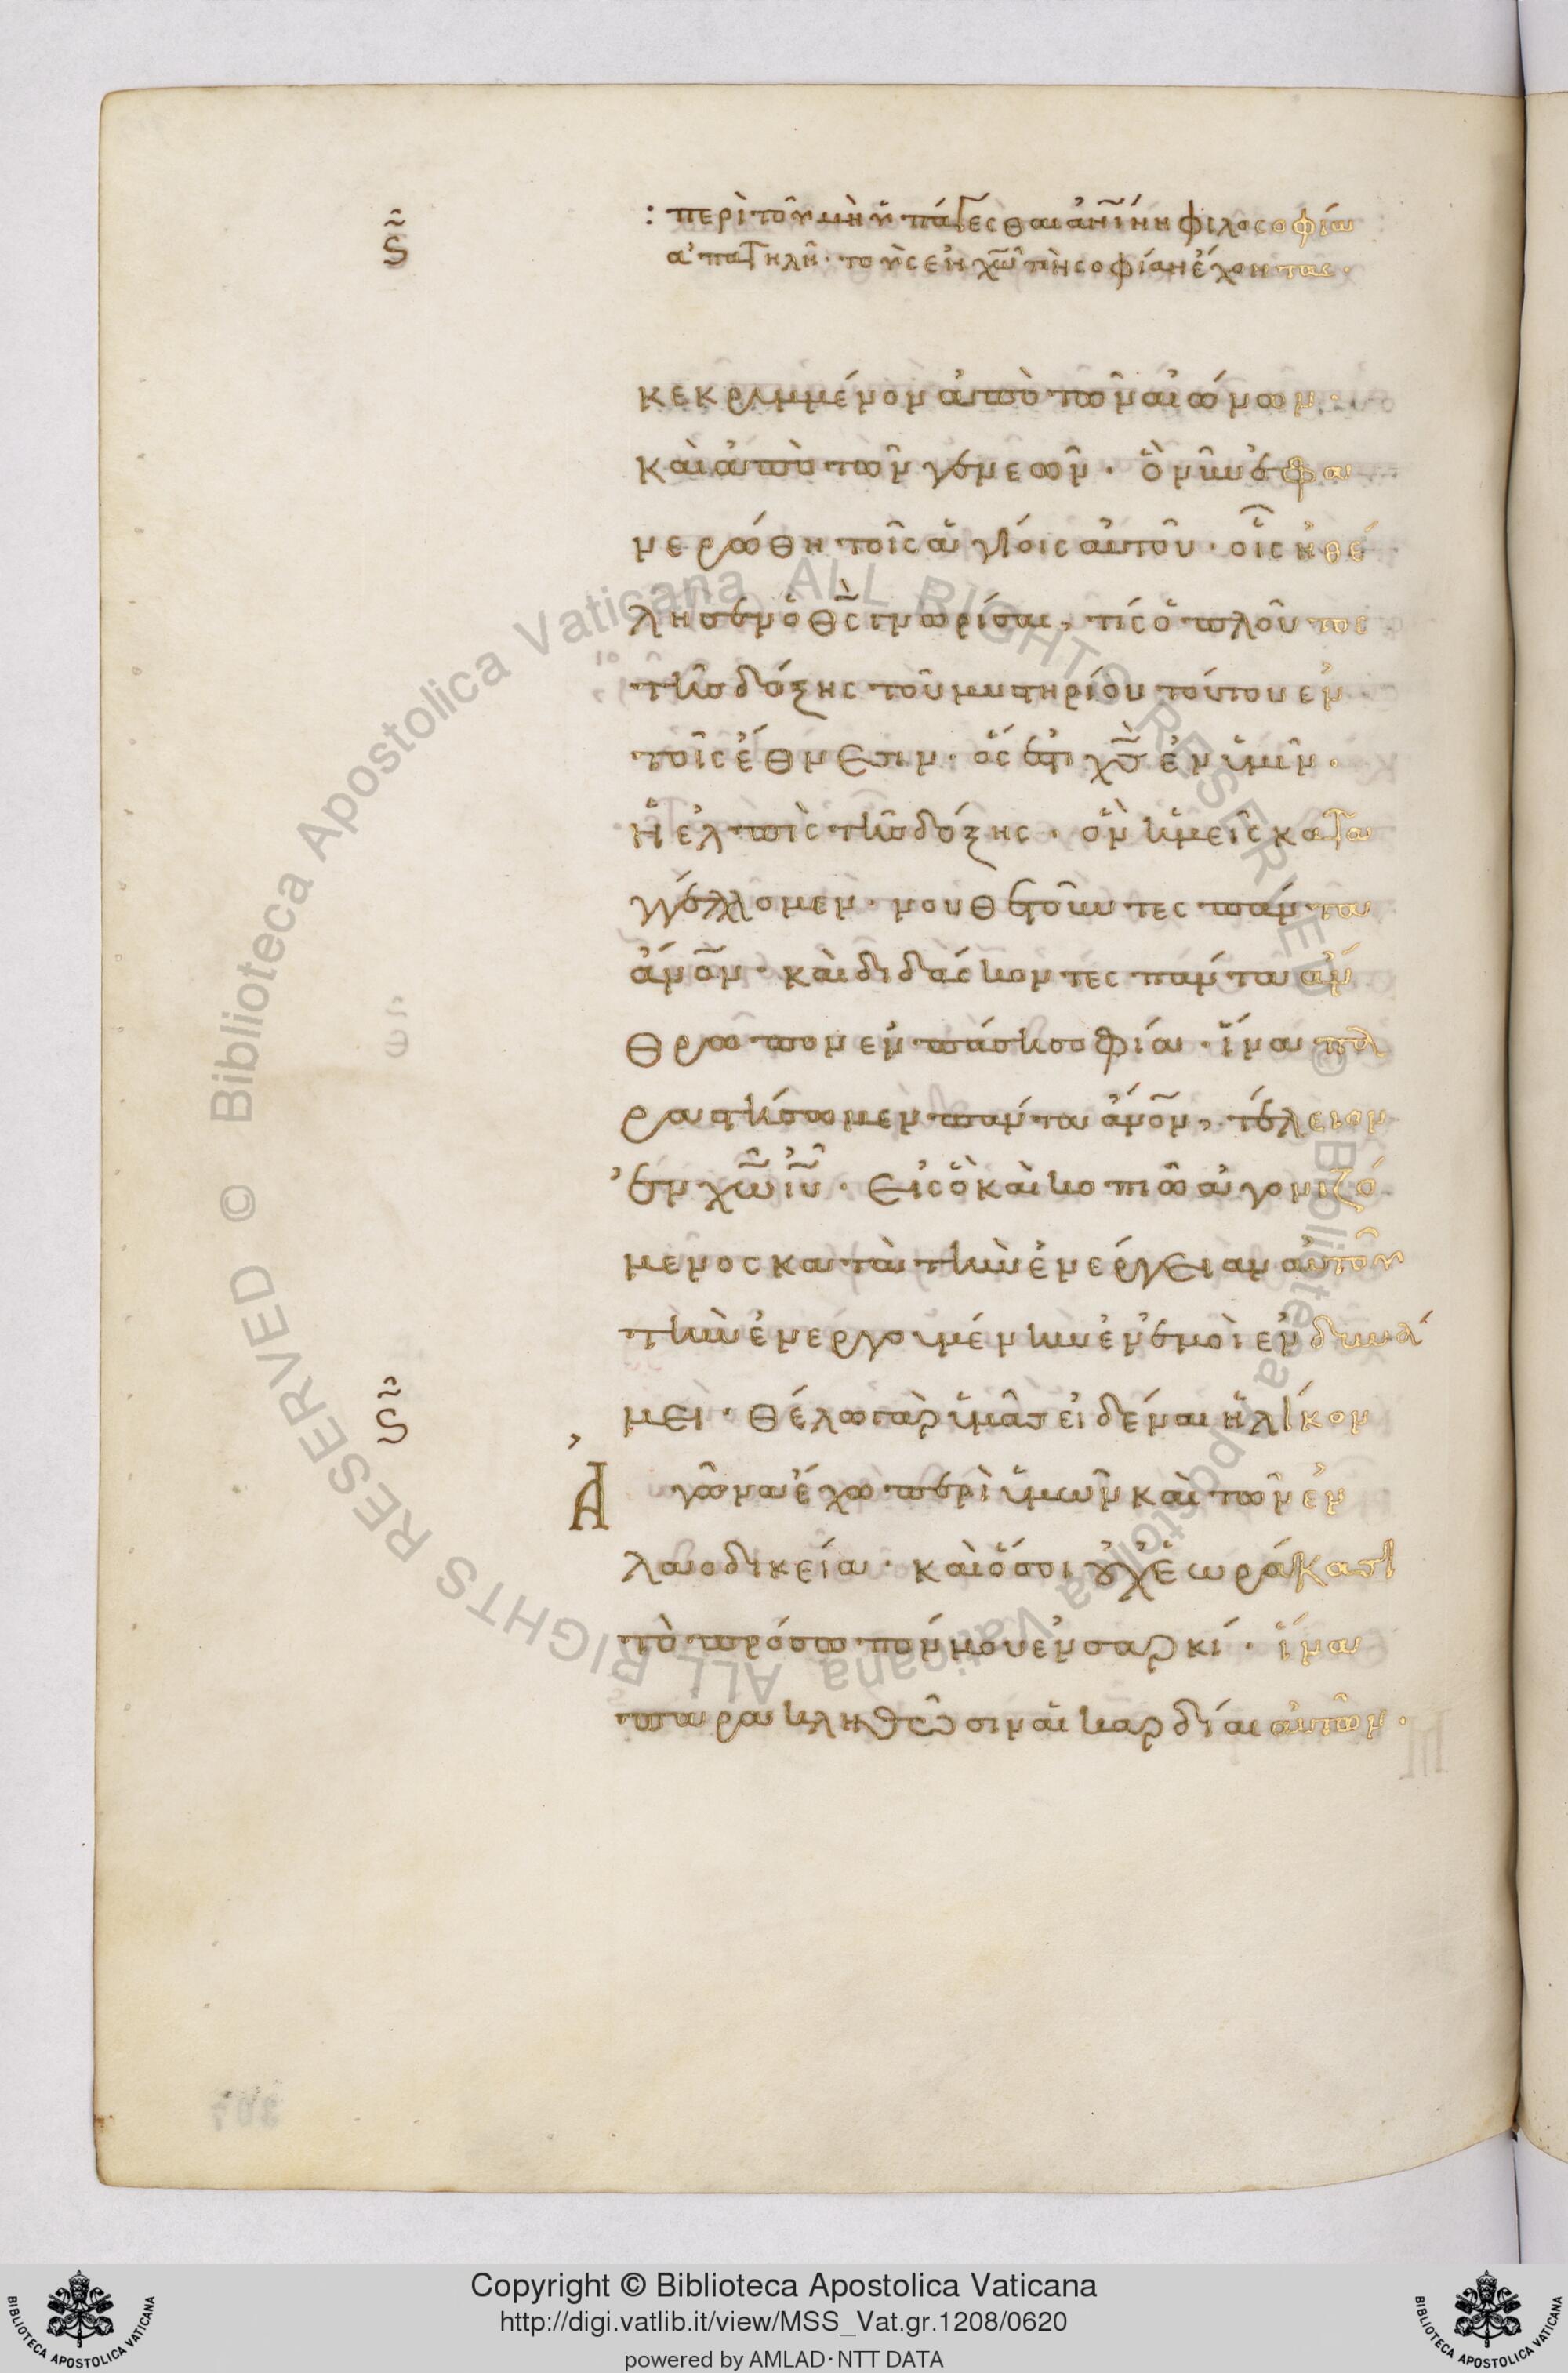 ς
: περὶ τοῦ μὴ ὑπάγεσθαι ἀν̅ίνη φιλοσοφία
ἀπατηλῆ· τοὺς ἐν χω̅ τὴν σοφίαν ἔχοντας·
κεκρυμμένον ἀπὸ τῶν αἰώνων·
καὶ ἀπὸ τῶν γενεῶν· ὃ νῦν ἐφα
νερώθη τοῖς ἁγίοις αὐτοῦ· οἷς ἠθέ
λησεν ὁ θς̅ γνωρίσαι, τίς ὁ πλοῦτος
τῆς δόξης τοῦ μυστηρίου τούτου ἐν
τοῖς ἔθνεσιν· ὅς ἐστι χς̅ ἐν ὑμῖν·
ἡ ἐλπὶς τῆς δόξης· ὃν ἡμεῖς κατα
γγέλλομεν· νουθετοῦντες πάντα
ἄν̅ον· καὶ διδάσκοντες πάντα ἄν
θρωπον ἐν πάση σοφία· ἵνα πα
ραστήσωμεν πάντα ἄν̅ον, τέλειον
ἐν χω̅ ιυ̅· εἰς ὃ καὶ κοπιῶ ἀγονιζό
μενος κατὰ τὴν ἐνέργειαν αὐτοῦ
τὴν ἐνεργουμένην ἐν ἐμοὶ ἐν δυνά
ς
μει· θέλω γὰρ ὑμᾶς εἰδέναι ἡλίκον
Ἀγῶνα ἔχω περὶ ὑμῶν καὶ τῶν ἐν
λαοδικεία· καὶ ὅσοι οὐχ ἑωράκασι
τὸ πρόσωπόν μου ἐν σαρκί· ἵνα
παρακληθῶσιν αἱ καρδίαι αὐτῶν·
Copyright © Biblioteca Apostolica Vaticana
http://digi.vatlib.it/view/MSS_Vat.gr.1208/0620
powered by AMLAD·NTT DATA
© Biblioteca Apostolica Vaticana ALL RIGHTS RESERVED
© Biblioteca Apostolica Vaticana ALL RIGHTS RESERVED
BIBLIOTECA APOSTOLICA VATICANA
BIBLIOTECA APOSTOLICA VATICANA